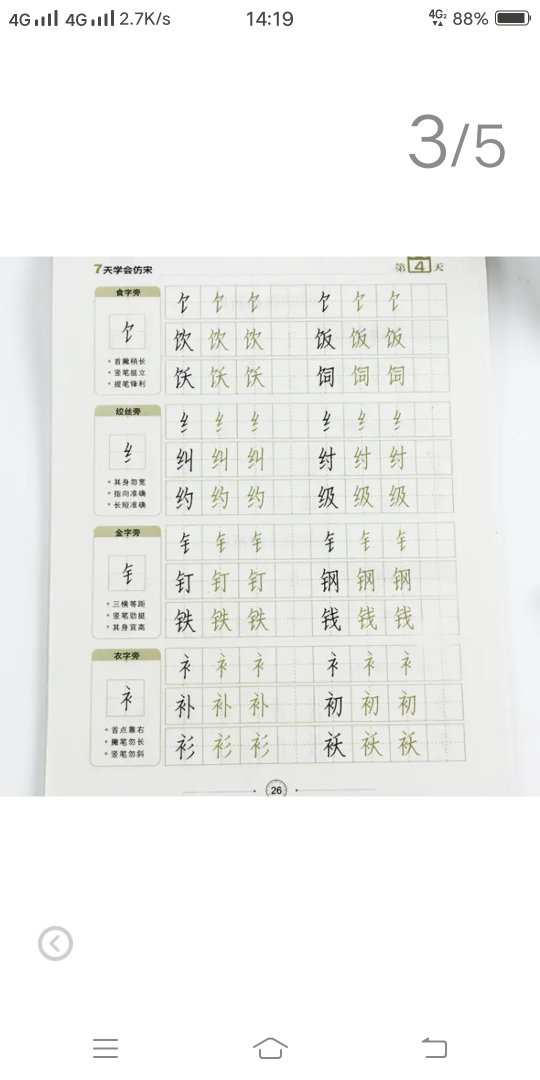 4G 4G 2.7K/s 14:19 4G2 88%
3/5
7天学会仿宋 第4天
食字旁
饣 饣 饣 饣 饣 饣 饣
首撇稍长
竖笔挺立
提笔锋利
饮 饮 饮 饭 饭 饭
饫 饫 饫 饲 饲 饲
绞丝旁
纟 纟 纟 纟 纟 纟 纟
其身勿宽
指向准确
长短准确
纠 纠 纠 纣 纣 纣
约 约 约 级 级 级
金字旁
钅 钅 钅 钅 钅 钅 钅
三横等距
竖笔劲挺
其身宜高
钉 钉 钉 钢 钢 钢
铁 铁 铁 钱 钱 钱
衣字旁
衤 衤 衤 衤 衤 衤 衤
首点靠右
撇笔勿长
竖笔勿斜
补 补 补 初 初 初
衫 衫 衫 袄 袄 袄
26